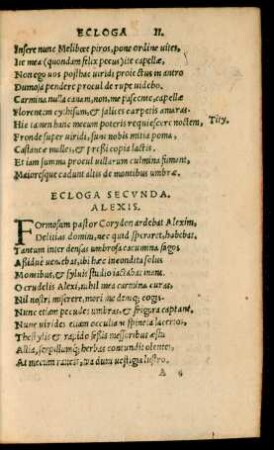 ECLOGA II.
Insere nunc Melibœe piros, pone ordine uites,
Ite meæ (quondam felix pecus) ite capellæ,
Non ego uos posthac uiridi proiectus in antro
Dumosa pendere procul de rupe uidebo.
Carmina nulla canam, non, me pascente, capellæ
Florentem cythisum, & salices carpetis amaras.
Hic tamen hanc mecum poteris requiescere noctem, Tity,
Fronde super uiridi, sunt nobis mitia poma,
Castaneæ molles, & pressi copia lactis.
Et iam summa procul uillarum culmina fumant,
Maioresque cadunt altis de montibus umbræ.
ECLOGA SECVNDA.
ALEXIS.
Formosum pastor Corydon ardebat Alexim,
Delitias domini, nec quid speraret, habebat.
Tantum inter densas umbrosa cacumina fagos
Aßidue ueniebat, ibi hæc incondita solus
Montibus, & syluis studio iactabat inani.
O crudelis Alexi, nihil mea carmina curas,
Nil nostri miserere, mori me deniq; cogis.
Nunc etiam pecudes umbras, & frigora captant,
Nunc uirides etiam occultant spineta lacertos,
Thestylis & rapido fessis messoribus æstu
Allia, serpillumq; herbas contundit olentes,
At mecum raucis, tua dum uestigia lustro,
A 4